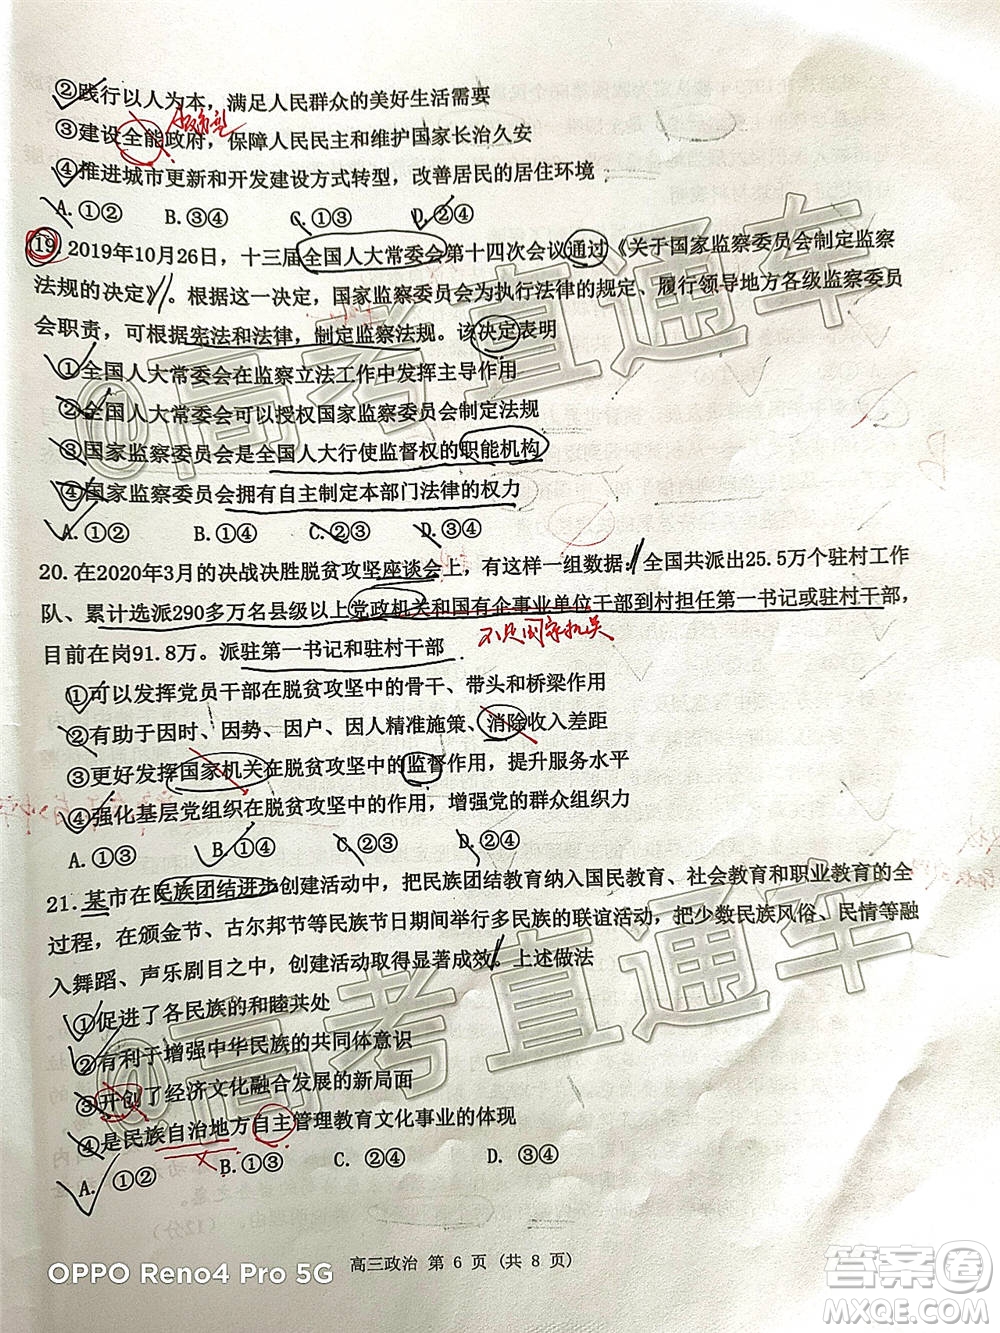 ②践行以人为本，满足人民群众的美好生活需要
③建设全能政府，保障人民民主和维护国家长治久安
④推进城市更新和开发建设方式转型，改善居民的居住环境
A. ①② B. ③④ C. ①③ D. ②④
19 2019年10月26日，十三届全国人大常委会第十四次会议通过《关于国家监察委员会制定监察
法规的决定》。根据这一决定，国家监察委员会为执行法律的规定、履行领导地方各级监察委员
会职责，可根据宪法和法律，制定监察法规。该决定表明
①全国人大常委会在监察立法工作中发挥主导作用
②全国人大常委会可以授权国家监察委员会制定法规
③国家监察委员会是全国人大行使监督权的职能机构
④国家监察委员会拥有自主制定本部门法律的权力
A. ①② B. ①④ C. ②③ D. ③④
20. 在2020年3月的决战决胜脱贫攻坚座谈会上，有这样一组数据：全国共派出25.5万个驻村工作
队、累计选派290多万名县级以上党政机关和国有企事业单位干部到村担任第一书记或驻村干部，
不是国家机关
目前在岗91.8万。派驻第一书记和驻村干部
①可以发挥党员干部在脱贫攻坚中的骨干、带头和桥梁作用
②有助于因时、因势、因户、因人精准施策，消除收入差距
③更好发挥国家机关在脱贫攻坚中的监督作用，提升服务水平
④强化基层党组织在脱贫攻坚中的作用，增强党的群众组织力
A. ①③ B. ①④ C. ②③ D. ②④
21. 某市在民族团结进步创建活动中，把民族团结教育纳入国民教育、社会教育和职业教育的全
过程，在颁金节、古尔邦节等民族节日期间举行多民族的联谊活动，把少数民族风俗、民情等融
入舞蹈、声乐剧目之中，创建活动取得显著成效。上述做法
①促进了各民族的和睦共处
②有利于增强中华民族的共同体意识
③开创了经济文化融合发展的新局面
④是民族自治地方自主管理教育文化事业的体现
A. ①② B. ①③ C. ②④ D. ③④
高三政治 第 6 页 (共 8 页)
OPPO Reno4 Pro 5G
@高考直通车
@高考直通车
答案圈
MXQE.COM